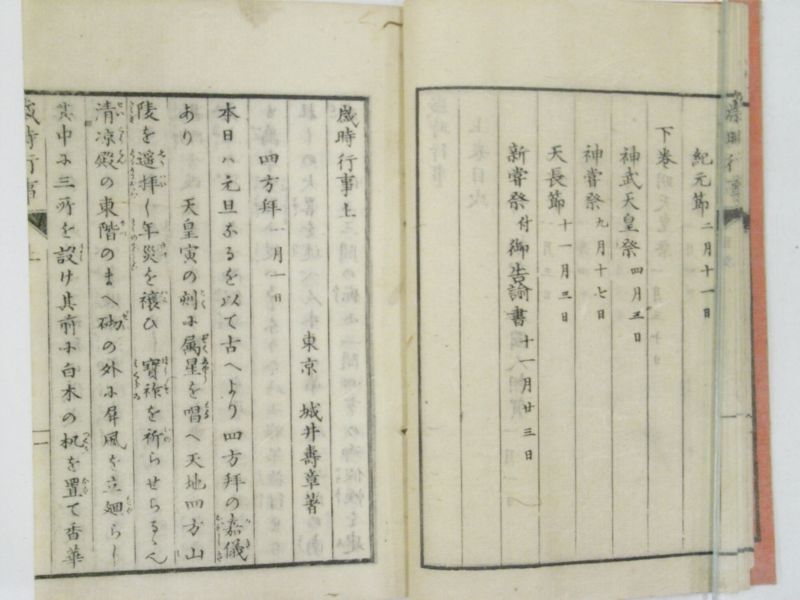 紀元節 二月十一日
下巻
神武天皇祭 四月三日
神嘗祭 九月十七日
天長節 十一月三日
新嘗祭 付御告諭書 十一月廿三日
歳時行事上
東京 城井壽章著
四方拜 一月一日
本日ハ元旦なるを以て古へより四方拜の嘉儀
あり 天皇寅の刻に属星を唱へ天地四方山
陵を遥拜し年災を禳ひ寶祚を祈らせらるゝ
清凉殿の東階のまへ砌の外に屏風を立廻らし
其中に三所を設け其前に白木の机を置て香華
歳時行事 上